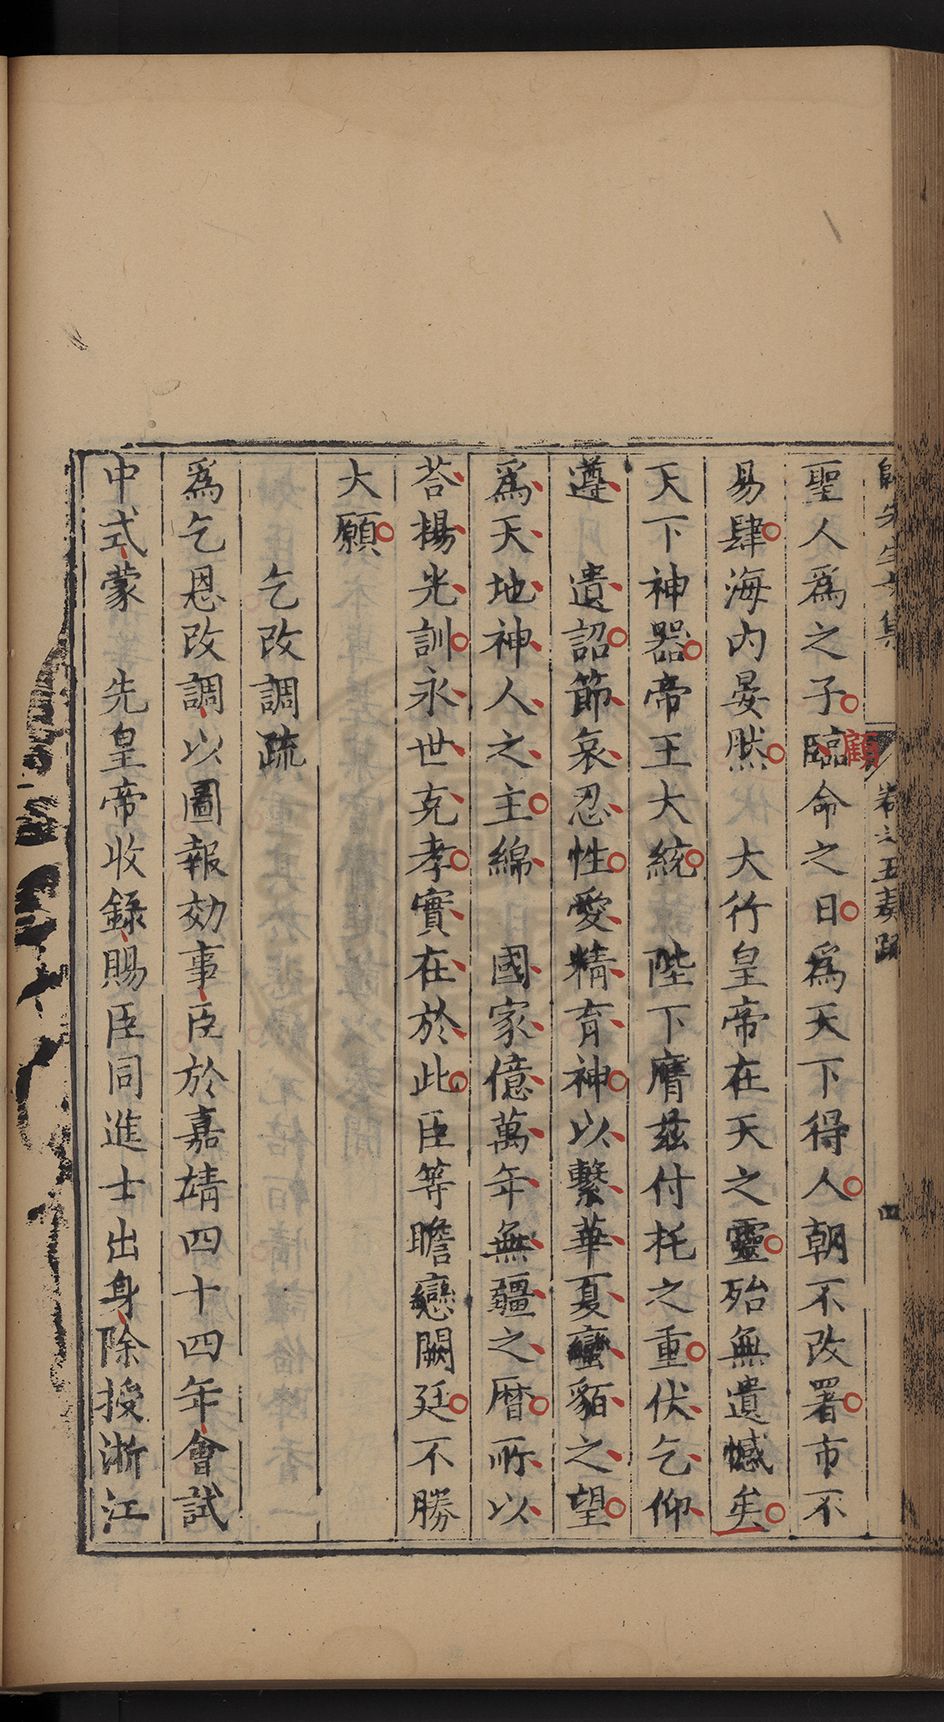 卷之五奏疏
四
顧
聖人爲之子臨命之日爲天下得人朝不改署市不
易肆海內晏然　大行皇帝在天之靈殆無遺憾矣
天下神器帝王大統　陛下膺茲付托之重伏乞仰
遵　遺詔節哀忍性愛精育神以繫華夏蠻貊之望
爲天地神人之主綿　國家億萬年無疆之曆所以
荅楊光訓永世克孝實在於此臣等瞻戀闕廷不勝
大願
乞改調疏
爲乞恩改調以圖報効事臣於嘉靖四十四年會試
中式蒙　先皇帝收錄賜臣同進士出身除授浙江